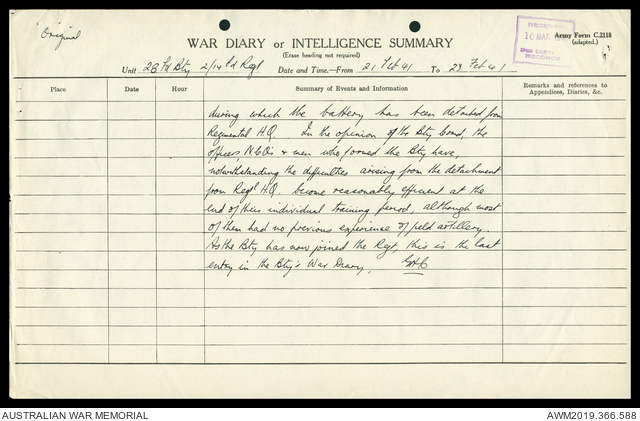 Original
RECEIVED
10 MAR
RECORDS
Army Form C.2118
(adapted.)
WAR DIARY or INTELLIGENCE SUMMARY
(Erase heading not required)
Unit 28 Fd Bty 2/14 Fd Regt Date and Time.—From 21 Feb 41 To 23 Feb 41
Place Date Hour Summary of Events and Information Remarks and references to
Appendices, Diaries, &c.
during which the battery has been detached from
Regimental H.Q. In the opinion of the Bty Comd, the
officers, N.C.O's & men who formed the Bty have,
notwithstanding the difficulties arising from the detachment
from Regtl H.Q. become reasonably efficient at the
end of their individual training period, although most
of them had no previous experience of field artillery.
As the Bty has now joined the Regt, this is the last
entry in the Bty's War Diary.
AUSTRALIAN WAR MEMORIAL
AWM2019.366.588